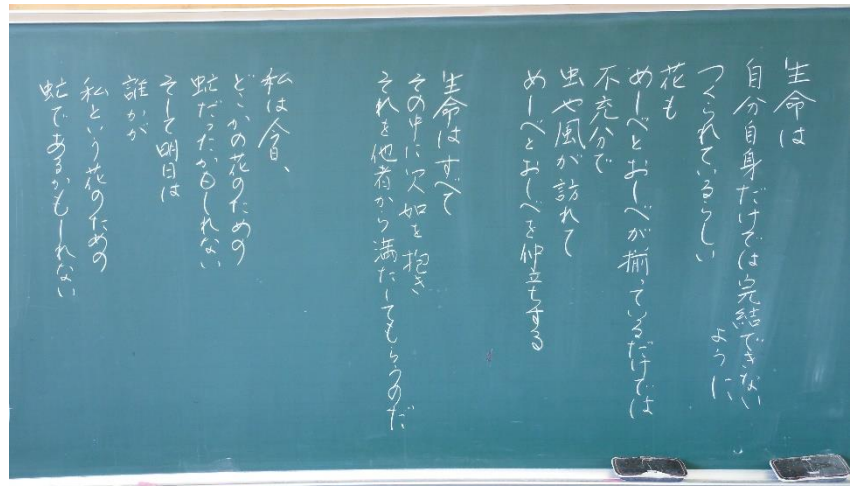 生命は
自分自身だけでは完結できない
ように
つくられているらしい
花も
めしべとおしべが揃っているだけでは
不充分で
虫や風が訪れて
めしべとおしべを仲立ちする
生命はすべて
その中に欠如を抱き
それを他者から満たしてもらうのだ
私は今日、
どこかの花のための
虻だったかもしれない
そして明日は
誰かが
私という花のための
虻であるかもしれない